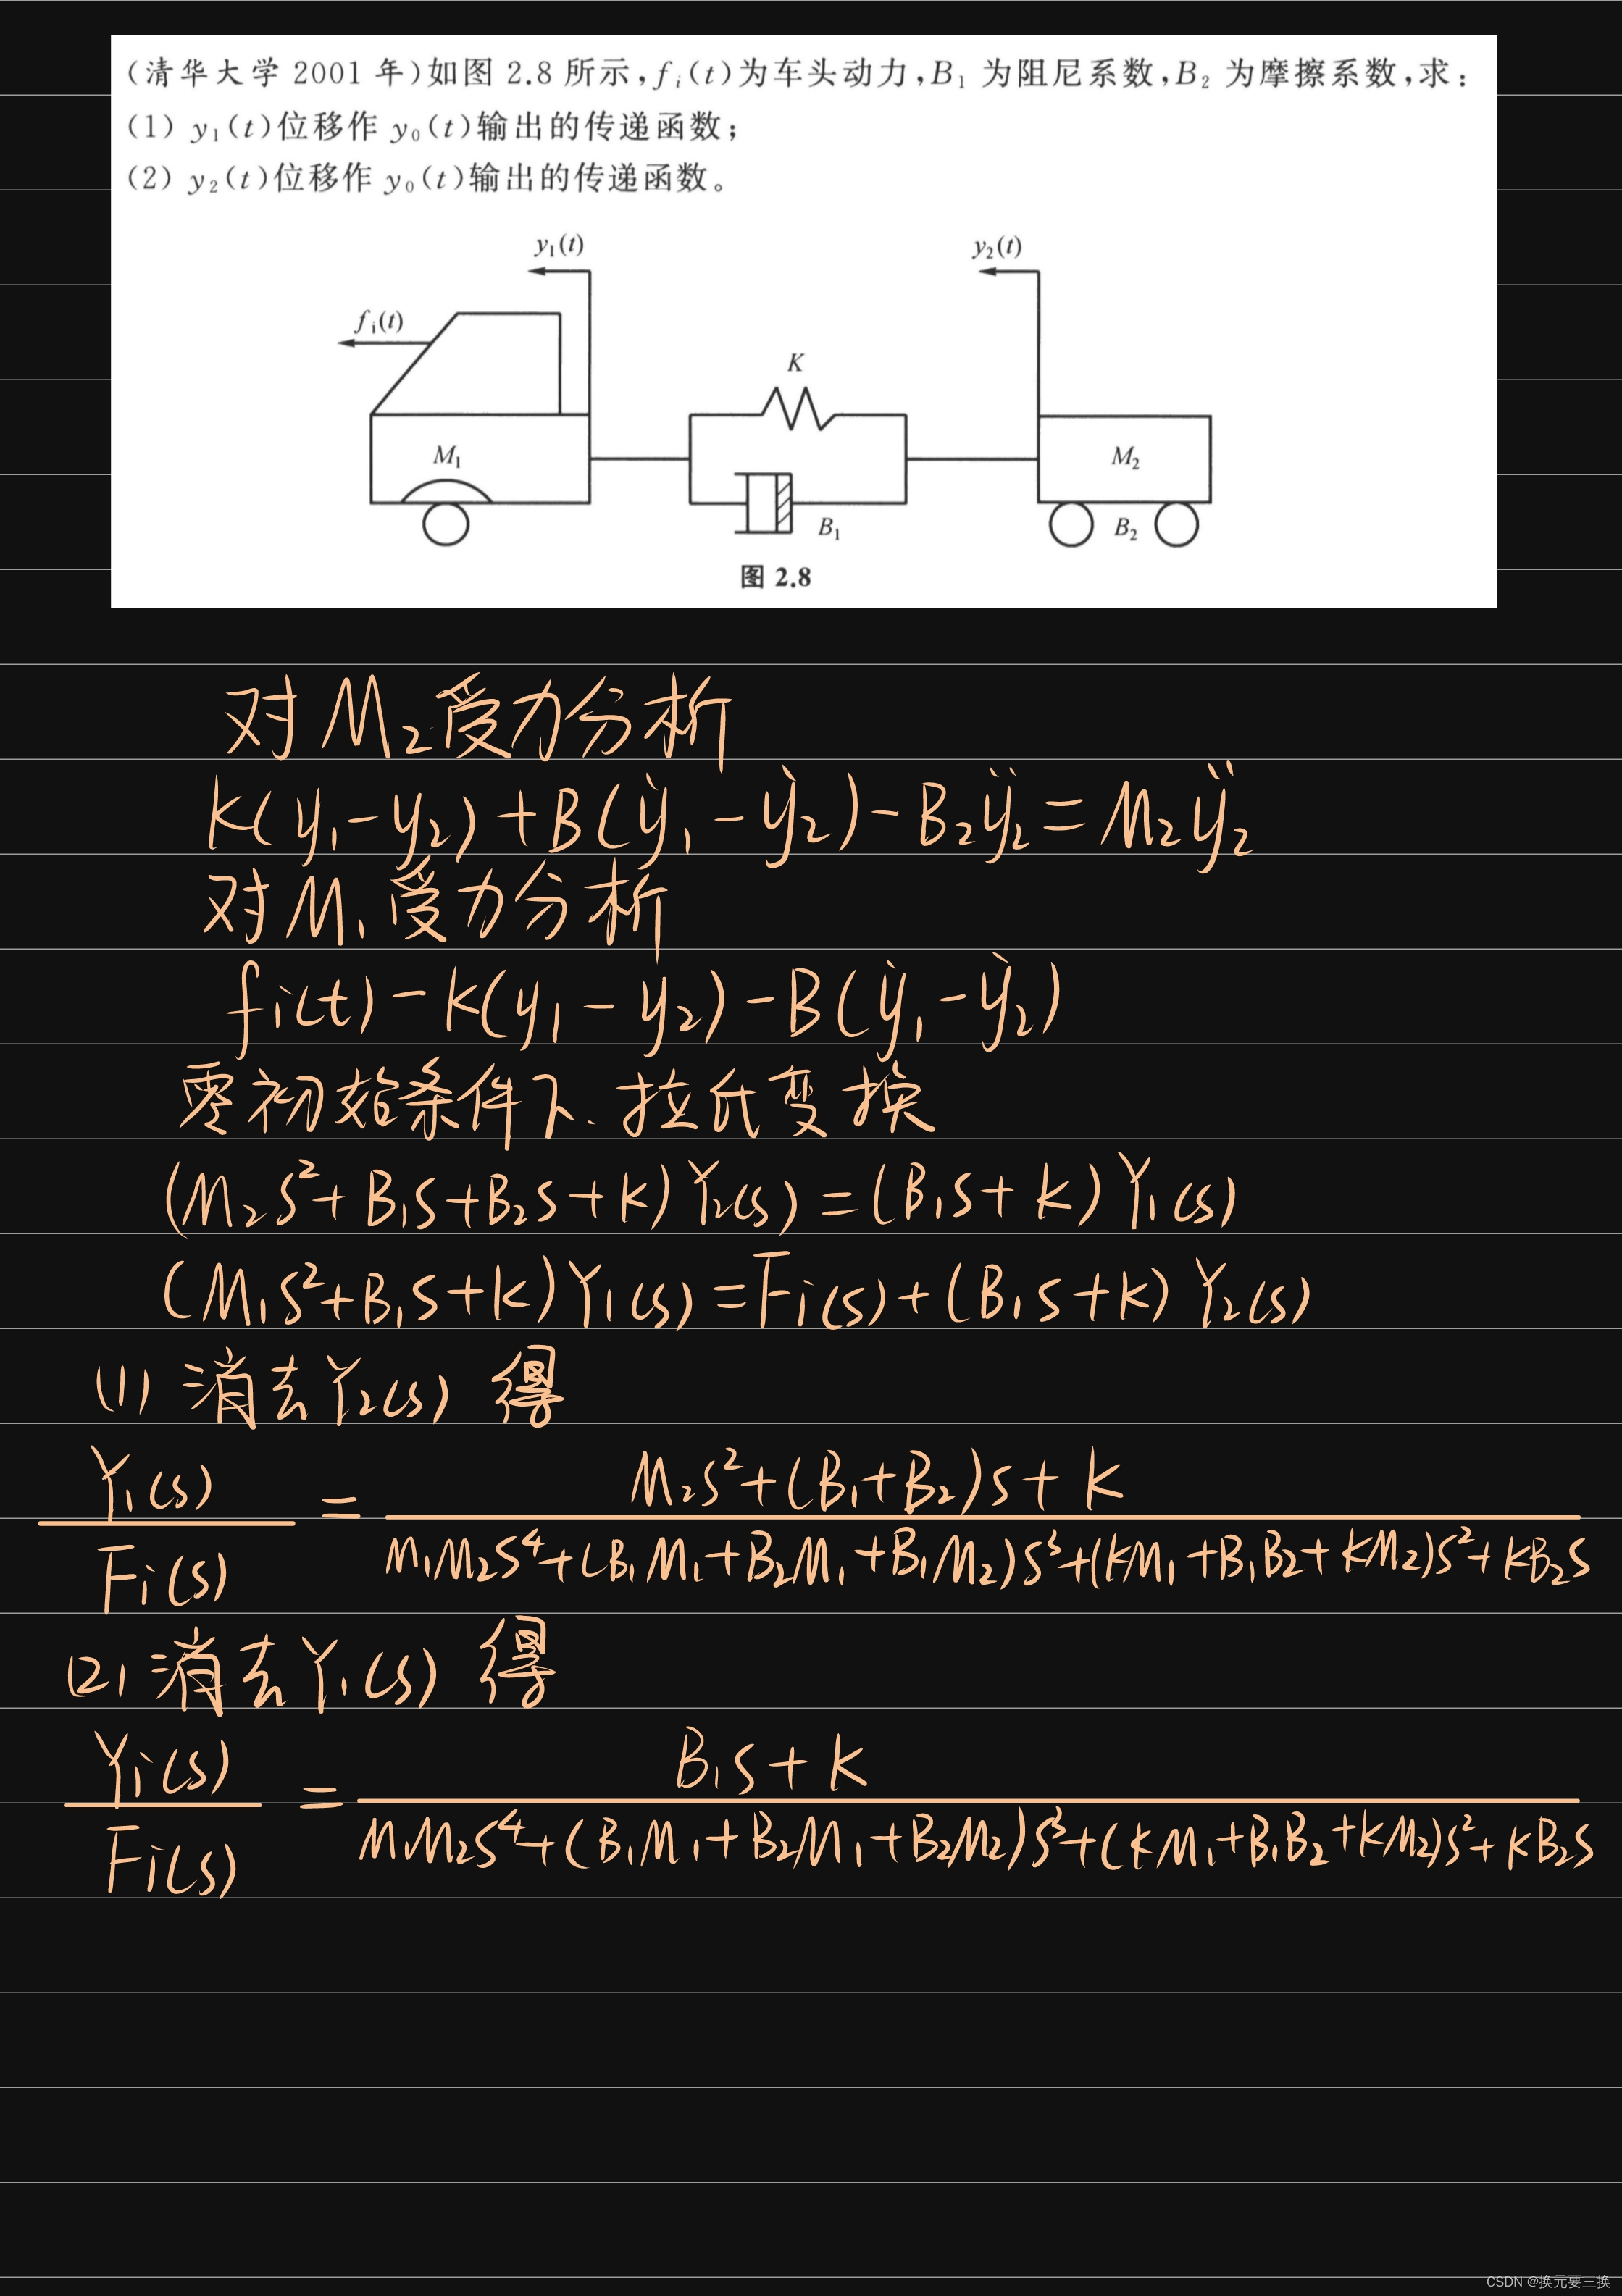 (清华大学 2001 年)如图 2.8 所示,fᵢ(t)为车头动力,B₁ 为阻尼系数,B₂ 为摩擦系数,求:
(1) y₁(t)位移作 y₀(t)输出的传递函数;
(2) y₂(t)位移作 y₀(t)输出的传递函数。
y₁(t)
y₂(t)
fᵢ(t)
K
M₁
M₂
B₁
B₂
图 2.8
对M₂受力分析
K(y₁-y₂)+B(ẏ₁-ẏ₂)-B₂ÿ₂=M₂ÿ₂
对M₁受力分析
fi(t)-K(y₁-y₂)-B(ẏ₁-ẏ₂)
零初始条件下.拉氏变换
(M₂S²+B₁S+B₂S+K)Y₂(s)=(B₁S+K)Y₁(s)
(M₁S²+B₁S+K)Y₁(s)=Fi(s)+(B₁S+K)Y₂(s)
(1) 消去Y₂(s) 得
Y₁(s)/Fi(s) = M₂S²+(B₁+B₂)S+K / M₁M₂S⁴+(B₁M₁+B₂M₁+B₁M₂)S³+(KM₁+B₁B₂+KM₂)S²+KB₂S
(2) 消去Y₁(s) 得
Yi(s)/Fi(s) = B₁S+K / M₁M₂S⁴+(B₁M₁+B₂M₁+B₂M₂)S³+(KM₁+B₁B₂+KM₂)S²+KB₂S
CSDN @换元要三换